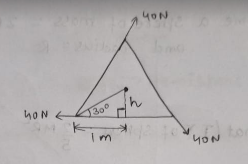 40N
h
30°
40N
1m
40N